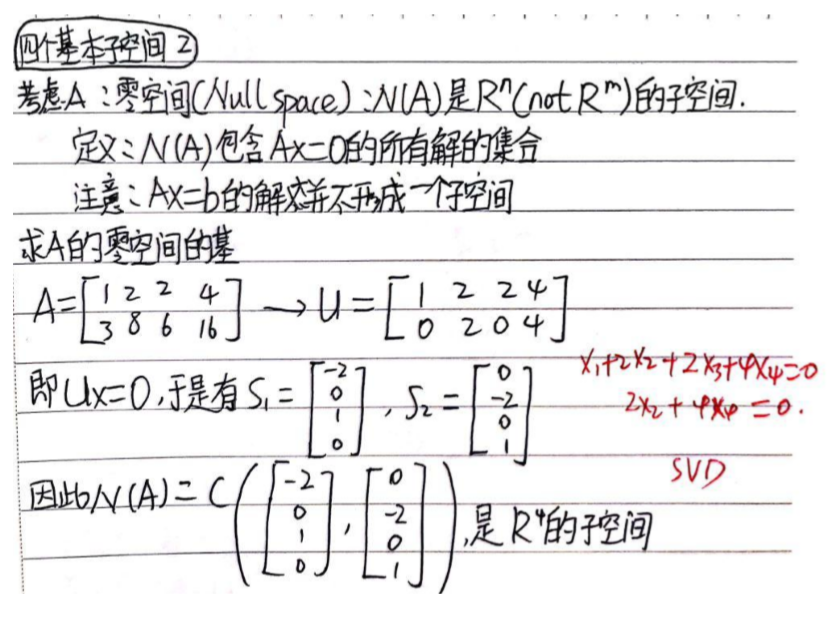 四个基本子空间 2
考虑A：零空间(Null space)：N(A)是Rⁿ(not Rᵐ)的子空间.
定义：N(A)包含Ax=0的所有解的集合
注意：Ax=b的解并不形成一个子空间
求A的零空间的基
A=[1 2 2 4; 3 8 6 16] → U=[1 2 2 4; 0 2 0 4]
即Ux=0,于是有S₁=[-2 0 1 0], S₂=[0 -2 0 1]
x₁+2x₂+2x₃+4x₄=0
2x₂+4x₄=0.
SVD
因此N(A)=C([-2 0 1 0],[0 -2 0 1]),是R⁴的子空间